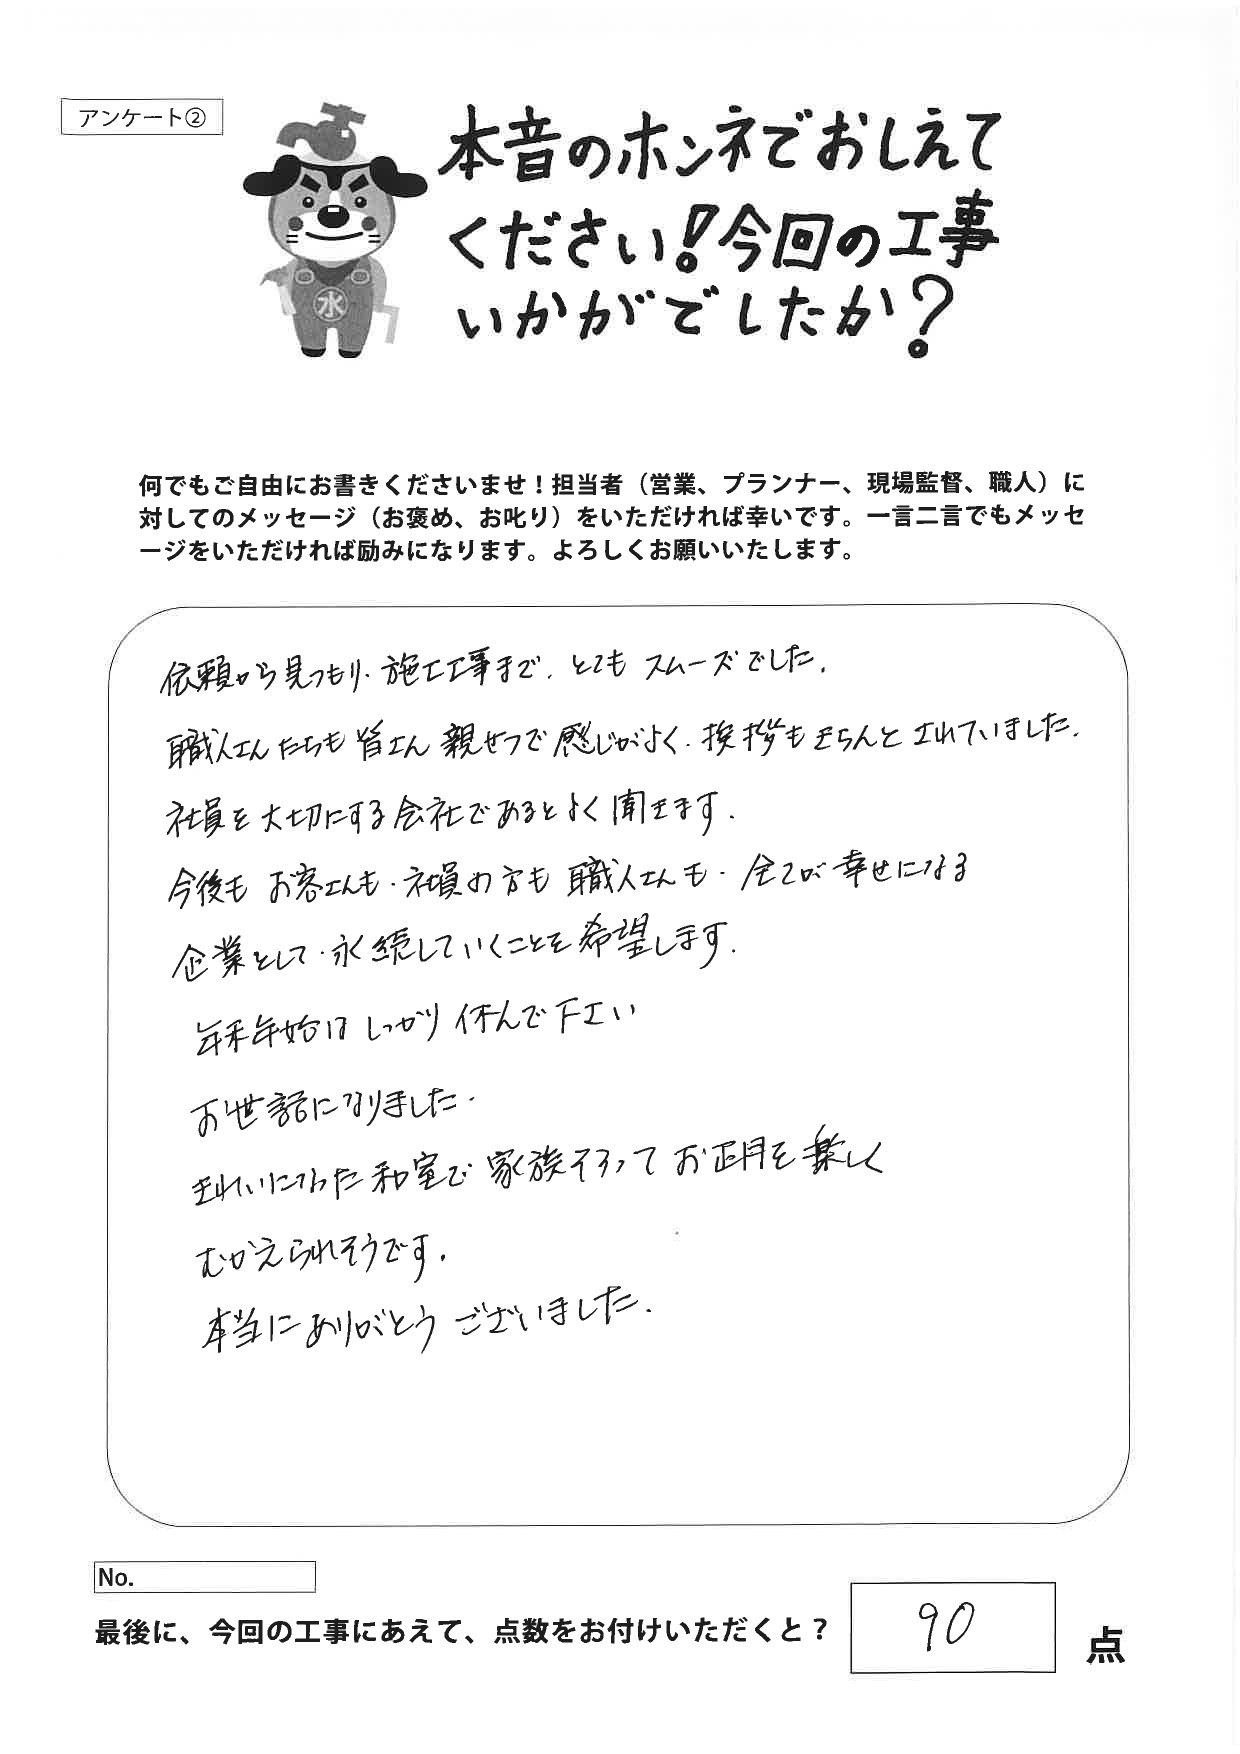 アンケート②
本音のホンネでおしえて
ください!今回の工事
いかがでしたか?
水
何でもご自由にお書きくださいませ！担当者（営業、プランナー、現場監督、職人）に
対してのメッセージ（お褒め、お叱り）をいただければ幸いです。一言二言でもメッセ
ージをいただければ励みになります。よろしくお願いいたします。
依頼から見つもり、施工工事まで、とても スムーズでした。
職人さんたちも 皆さん 親せつで感じがよく、挨拶もきちんとされていました。
社員を大切にする会社であるとよく聞きます。
今後も お客さんも、社員の方も 職人さんも、全てが幸せになる
企業として、永続していくことを希望します。
年末年始は しっかり 休んで下さい
お世話になりました。
きれいになった和室で 家族そろって お正月を楽しく
むかえられそうです。
本当にありがとう ございました。
No.
最後に、今回の工事にあえて、点数をお付けいただくと？ 90 点